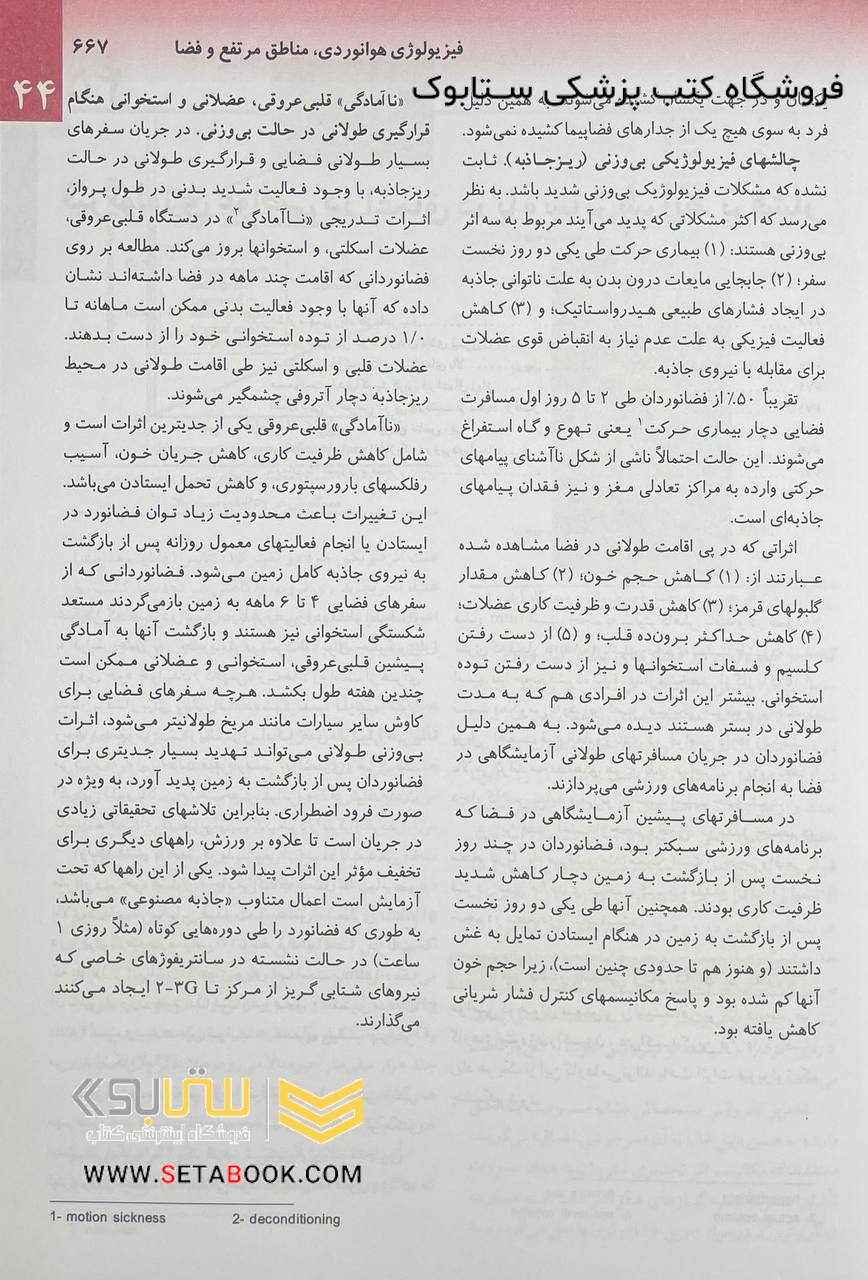 فیزیولوژی هوانوردی، مناطق مرتفع و فضا
۶۶۷
۴۴
فروشگاه کتب پزشکی ستابوک
فرد به سوی هیچ یک از جدارهای فضاپیما کشیده نمی‌شود.
چالشهای فیزیولوژیکی بی‌وزنی (ریزجاذبه). ثابت
نشده که مشکلات فیزیولوژیک بی‌وزنی شدید باشد. به نظر
می‌رسد که اکثر مشکلاتی که پدید می‌آیند مربوط به سه اثر
بی‌وزنی هستند: (۱) بیماری حرکت طی یکی دو روز نخست
سفر؛ (۲) جابجایی مایعات درون بدن به علت ناتوانی جاذبه
در ایجاد فشارهای طبیعی هیدرواستاتیک؛ و (۳) کاهش
فعالیت فیزیکی به علت عدم نیاز به انقباض قوی عضلات
برای مقابله با نیروی جاذبه.
تقریباً ۵۰٪ از فضانوردان طی ۲ تا ۵ روز اول مسافرت
فضایی دچار بیماری حرکت۱ یعنی تهوع و گاه استفراغ
می‌شوند. این حالت احتمالاً ناشی از شکل ناآشنای پیامهای
حرکتی وارده به مراکز تعادلی مغز و نیز فقدان پیامهای
جاذبه‌ای است.
اثراتی که در پی اقامت طولانی در فضا مشاهده شده
عبارتند از: (۱) کاهش حجم خون؛ (۲) کاهش مقدار
گلبولهای قرمز؛ (۳) کاهش قدرت و ظرفیت کاری عضلات؛
(۴) کاهش حداکثر برون‌ده قلب؛ و (۵) از دست رفتن
کلسیم و فسفات استخوانها و نیز از دست رفتن توده
استخوانی. بیشتر این اثرات در افرادی هم که به مدت
طولانی در بستر هستند دیده می‌شود. به همین دلیل
فضانوردان در جریان مسافرتهای طولانی آزمایشگاهی در
فضا به انجام برنامه‌های ورزشی می‌پردازند.
در مسافرتهای پیشین آزمایشگاهی در فضا که
برنامه‌های ورزشی سبکتر بود، فضانوردان در چند روز
نخست پس از بازگشت به زمین دچار کاهش شدید
ظرفیت کاری بودند. همچنین آنها طی یکی دو روز نخست
پس از بازگشت به زمین در هنگام ایستادن تمایل به غش
داشتند (و هنوز هم تا حدودی چنین است)، زیرا حجم خون
آنها کم شده بود و پاسخ مکانیسمهای کنترل فشار شریانی
کاهش یافته بود.
«ناآمادگی» قلبی‌عروقی، عضلانی و استخوانی هنگام
قرارگیری طولانی در حالت بی‌وزنی. در جریان سفرهای
بسیار طولانی فضایی و قرارگیری طولانی در حالت
ریزجاذبه، با وجود فعالیت شدید بدنی در طول پرواز،
اثرات تدریجی «ناآمادگی۲» در دستگاه قلبی‌عروقی،
عضلات اسکلتی، و استخوانها بروز می‌کند. مطالعه بر روی
فضانوردانی که اقامت چند ماهه در فضا داشته‌اند نشان
داده که آنها با وجود فعالیت بدنی ممکن است ماهانه تا
۱/۰ درصد از توده استخوانی خود را از دست بدهند.
عضلات قلبی و اسکلتی نیز طی اقامت طولانی در محیط
ریزجاذبه دچار آتروفی چشمگیر می‌شوند.
«ناآمادگی» قلبی‌عروقی یکی از جدیترین اثرات است و
شامل کاهش ظرفیت کاری، کاهش جریان خون، آسیب
رفلکسهای بارورسپتوری، و کاهش تحمل ایستادن می‌باشد.
این تغییرات باعث محدودیت زیاد توان فضانورد در
ایستادن یا انجام فعالیتهای معمول روزانه پس از بازگشت
به نیروی جاذبه کامل زمین می‌شود. فضانوردانی که از
سفرهای فضایی ۴ تا ۶ ماهه به زمین بازمی‌گردند مستعد
شکستگی استخوانی نیز هستند و بازگشت آنها به آمادگی
پیشین قلبی‌عروقی، استخوانی و عضلانی ممکن است
چندین هفته طول بکشد. هرچه سفرهای فضایی برای
کاوش سایر سیارات مانند مریخ طولانیتر می‌شود، اثرات
بی‌وزنی طولانی می‌تواند تهدید بسیار جدیتری برای
فضانوردان پس از بازگشت به زمین پدید آورد، به ویژه در
صورت فرود اضطراری. بنابراین تلاشهای تحقیقاتی زیادی
در جریان است تا علاوه بر ورزش، راههای دیگری برای
تخفیف مؤثر این اثرات پیدا شود. یکی از این راهها که تحت
آزمایش است اعمال متناوب «جاذبه مصنوعی» می‌باشد،
به طوری که فضانورد را طی دوره‌هایی کوتاه (مثلاً روزی ۱
ساعت) در حالت نشسته در سانتریفوژهای خاصی که
نیروهای شتابی گریز از مرکز تا ۲-۳G ایجاد می‌کنند
می‌گذارند.
ستابوک
فروشگاه اینترنتی کتاب
WWW.SETABOOK.COM
1- motion sickness
2- deconditioning